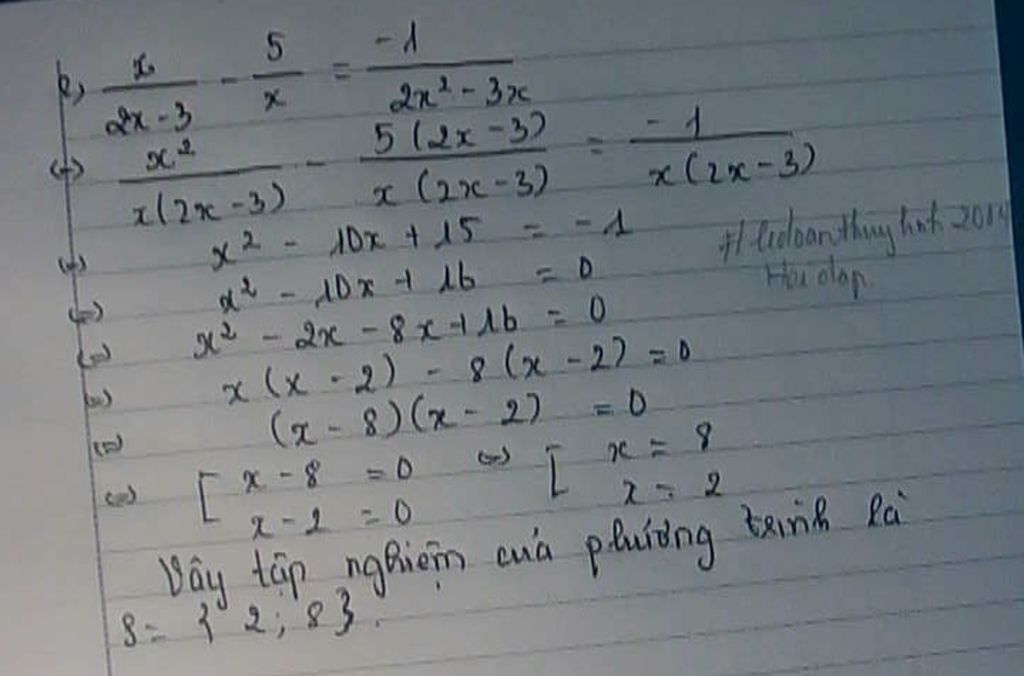 b) x/(2x-3) - 5/x = -1/(2x² - 3x)
(=) x²/(x(2x-3)) - 5(2x-3)/(x(2x-3)) = -1/(x(2x-3))
(=) x² - 10x + 15 = -1
(=) x² - 10x + 16 = 0
(=) x² - 2x - 8x + 16 = 0
(=) x(x-2) - 8(x-2) = 0
(=) (x-8)(x-2) = 0
(=) [ x-8 = 0 (=) [ x = 8
x-2 = 0 x = 2
Hoidap
Vậy tập nghiệm của phương trình là
S = { 2; 8 }.